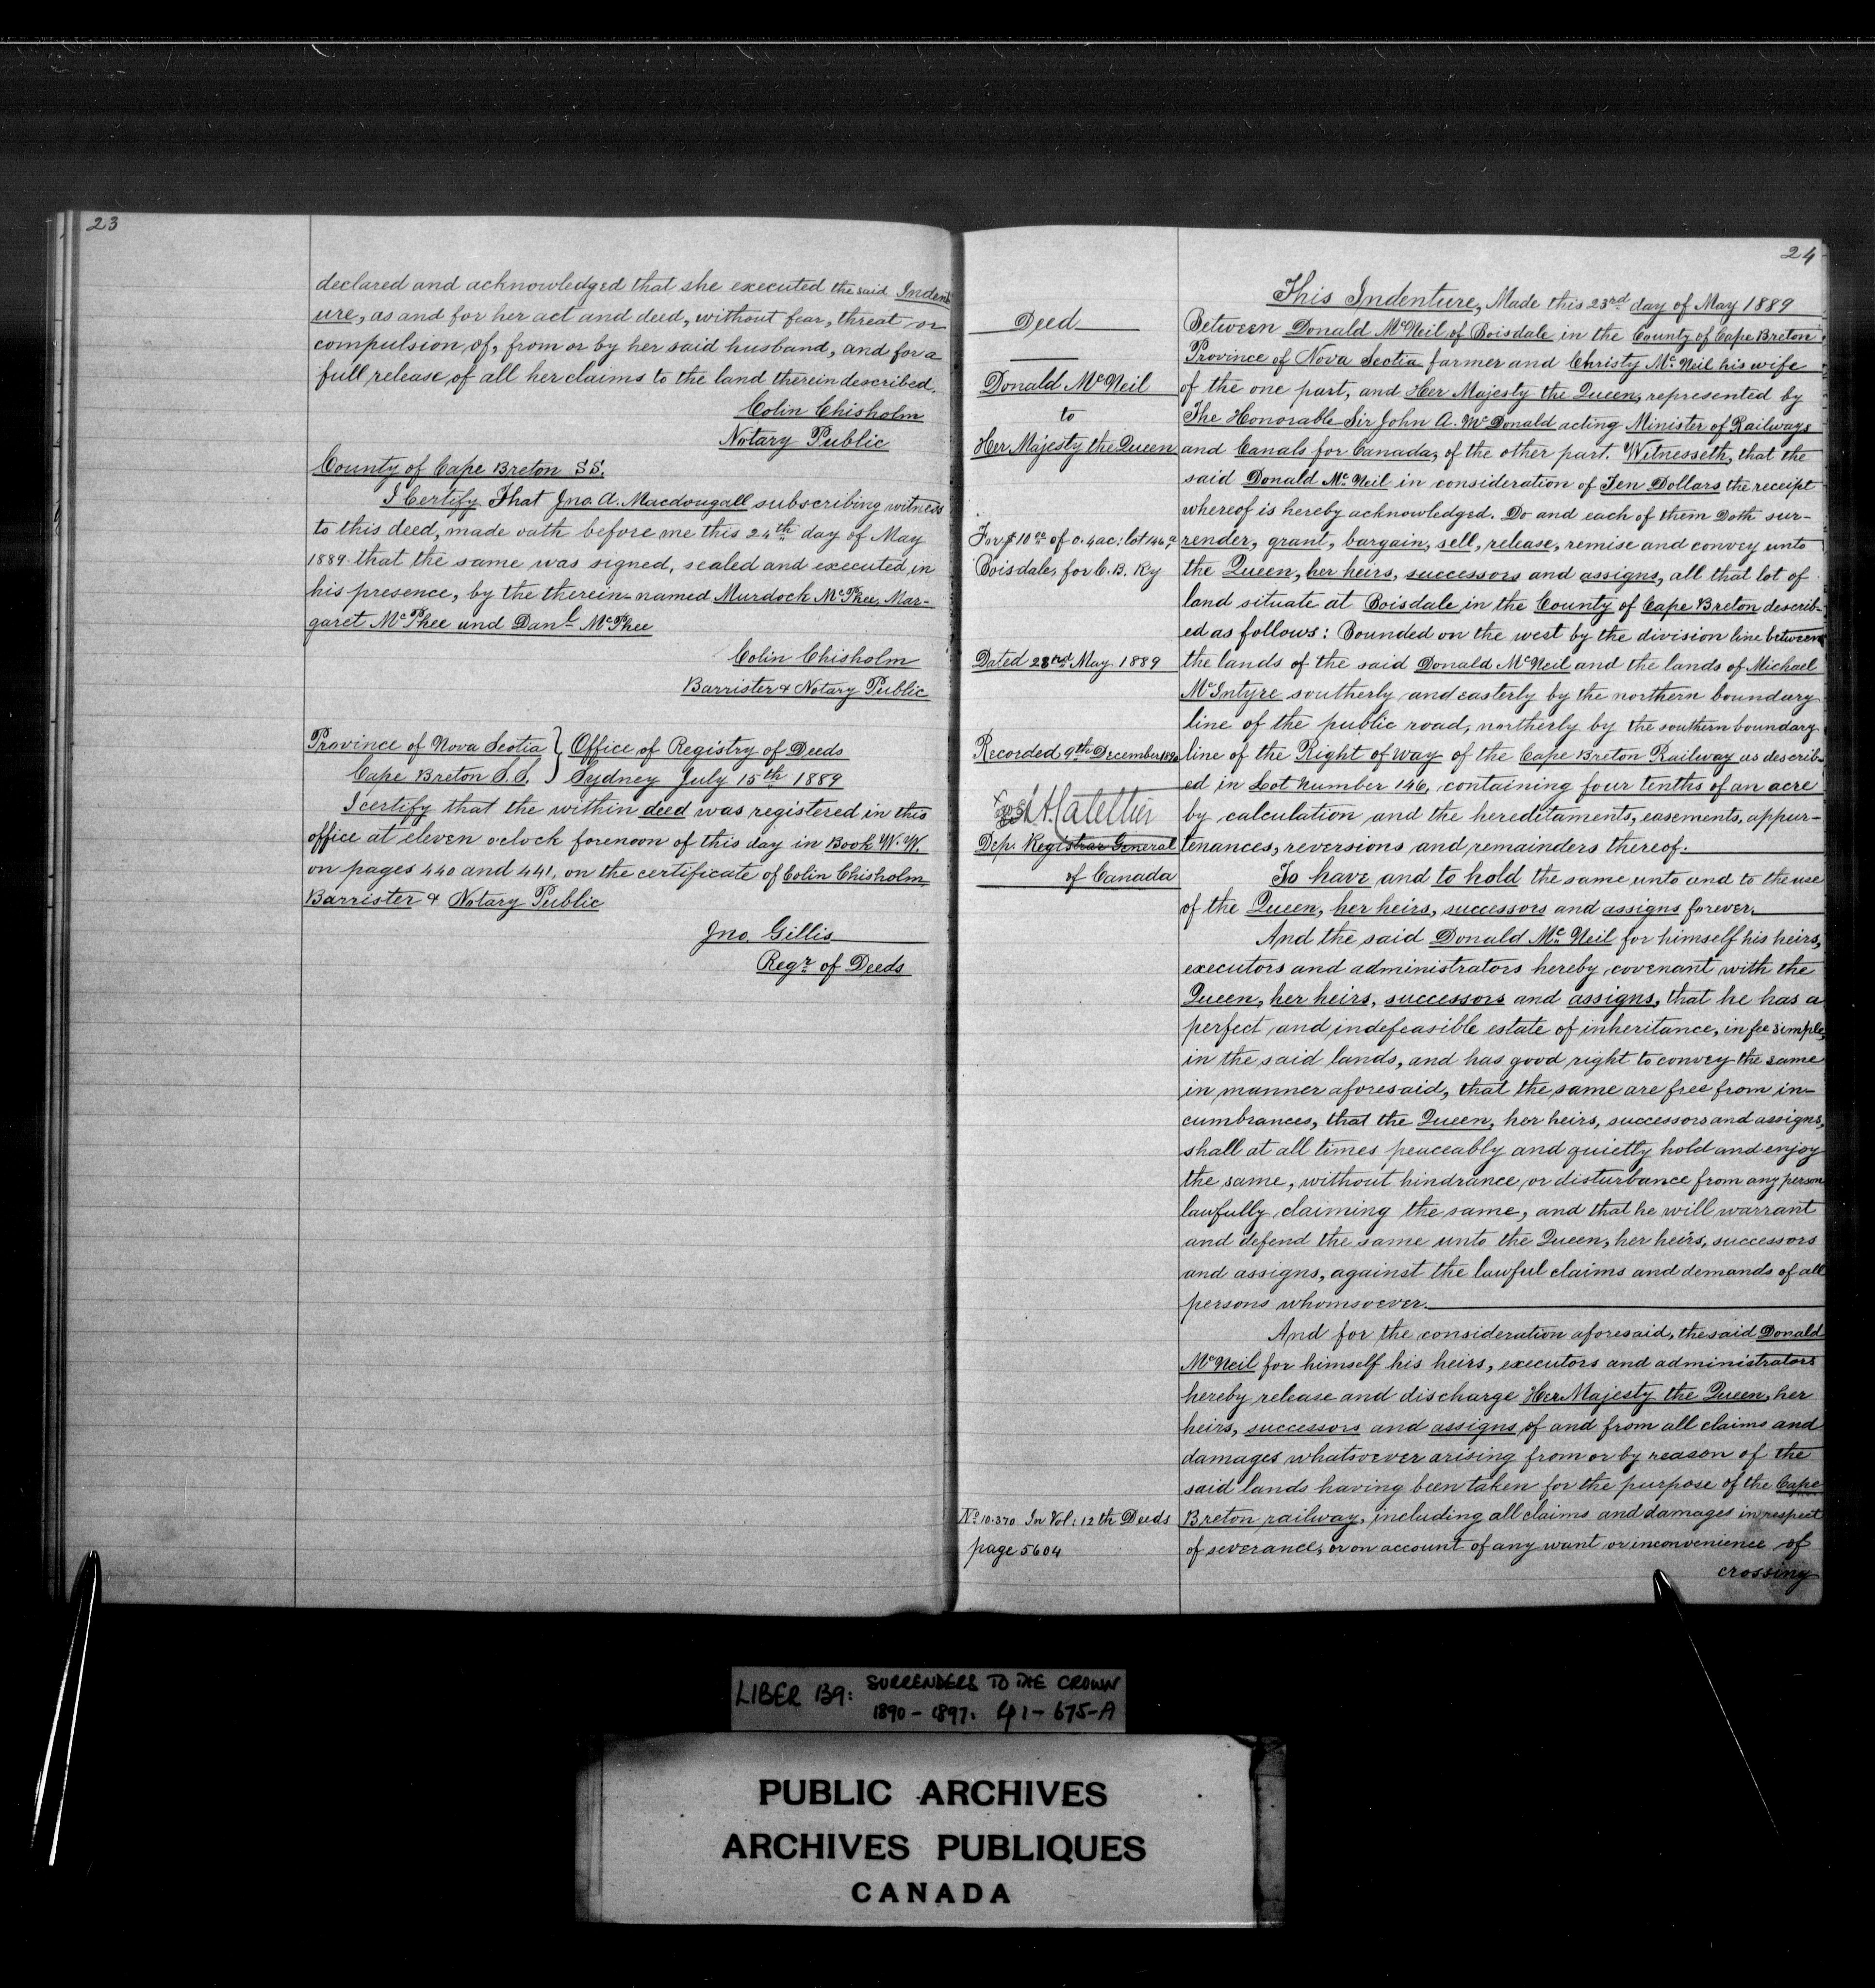 23
declared and acknowledged that she executed the said Indent
ure, as and for her act and deed, without fear, threat or
compulsion of, from or by her said husband, and for a
full release of all her claims to the land therein described.
Colin Chisholm
Notary Public
County of Cape Breton SS.
I Certify That Jno. A. Macdougall subscribing witness
to this deed, made oath before me this 24th day of May
1889 that the same was signed, sealed and executed in
his presence, by the therein-named Murdoch McPhee, Mar-
garet McPhee and Danl. McPhee
Colin Chisholm
Barrister & Notary Public
Province of Nova Scotia } Office of Registry of Deeds
Cape Breton S.S. } Sydney July 15th 1889
I certify that the within deed was registered in this
office at eleven oclock forenoon of this day in Book W.W.
on pages 440 and 441, on the certificate of Colin Chisholm
Barrister & Notary Public
Jno. Gillis
Regr of Deeds
24
Deed
Donald McNeil
to
Her Majesty the Queen
For $10 of 0.4 ac: lot 46
Boisdale, for C.B. Ry
Dated 23rd May 1889
Recorded 9th December 1890
Dep. Registrar General
of Canada
No 10.370 In Vol: 12th Deeds
page 5604
This Indenture, Made this 23rd day of May 1889
Between Donald McNeil of Boisdale in the County of Cape Breton
Province of Nova Scotia farmer and Christy McNeil his wife
of the one part, and Her Majesty the Queen, represented by
The Honorable Sir John A. McDonald acting Minister of Railways
and Canals for Canada, of the other part. Witnesseth, that the
said Donald McNeil in consideration of Ten Dollars the receipt
whereof is hereby acknowledged. Do and each of them Doth sur-
render, grant, bargain, sell, release, remise and convey unto
the Queen, her heirs, successors and assigns, all that lot of
land situate at Boisdale in the County of Cape Breton describ-
ed as follows: Bounded on the west by the division line between
the lands of the said Donald McNeil and the lands of Michael
McIntyre southerly and easterly by the northern boundary
line of the public road, northerly by the southern boundary
line of the Right of Way of the Cape Breton Railway as describ-
ed in Lot Number 146, containing four tenths of an acre
by calculation and the hereditaments, easements, appur-
tenances, reversions and remainders thereof.
To have and to hold the same unto and to the use
of the Queen, her heirs, successors and assigns forever.
And the said Donald McNeil for himself his heirs,
executors and administrators hereby covenant with the
Queen, her heirs, successors and assigns, that he has a
perfect and indefeasible estate of inheritance, in fee simple,
in the said lands, and has good right to convey the same
in manner aforesaid, that the same are free from in-
cumbrances, that the Queen, her heirs, successors and assigns,
shall at all times peaceably and quietly hold and enjoy
the same, without hindrance or disturbance from any person
lawfully claiming the same, and that he will warrant
and defend the same unto the Queen, her heirs, successors
and assigns, against the lawful claims and demands of all
persons whomsoever.
And for the consideration aforesaid, the said Donald
McNeil for himself his heirs, executors and administrators
hereby release and discharge Her Majesty the Queen, her
heirs, successors and assigns of and from all claims and
damages whatsoever arising from or by reason of the
said lands having been taken for the purpose of the Cape
Breton railway, including all claims and damages in respect
of severance, or on account of any want or inconvenience of
crossing
LIBER 139: SURRENDERS TO THE CROWN
1890-1897. 41-675-A
PUBLIC ARCHIVES
ARCHIVES PUBLIQUES
CANADA